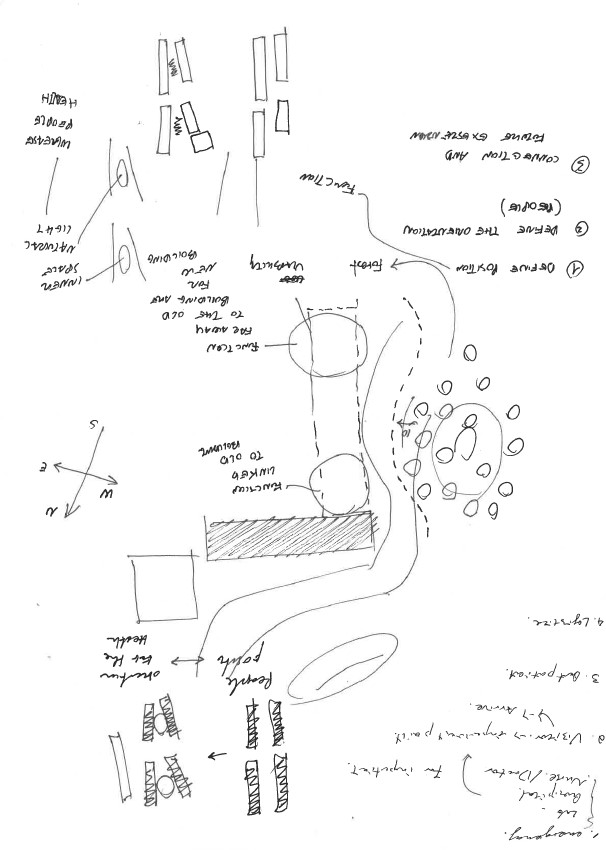 1. emergency.
Lab -
Hospital.
Nurse/Doctor
For inpatient.
2. Visitor → inpatient path
↳ Service.
3. Outpatient
People path ↔ orection for the Heath
N
W
E
S
FUNCTION
LINKED
TO OLD
FUNCTION
FAR AWAY
TO THE OLD
BUILDING AND
FOR
NEW
BUILDING
INNER
SPACE
NATURAL
LIGHT
PEOPLE
HEALTH
Forest
FUNCTION
10
① DEFINE POSITION
② DEFINE THE ORIENTATION
(PEOPLE)
③ CONNECTION AND
FUTURE EXTENSION